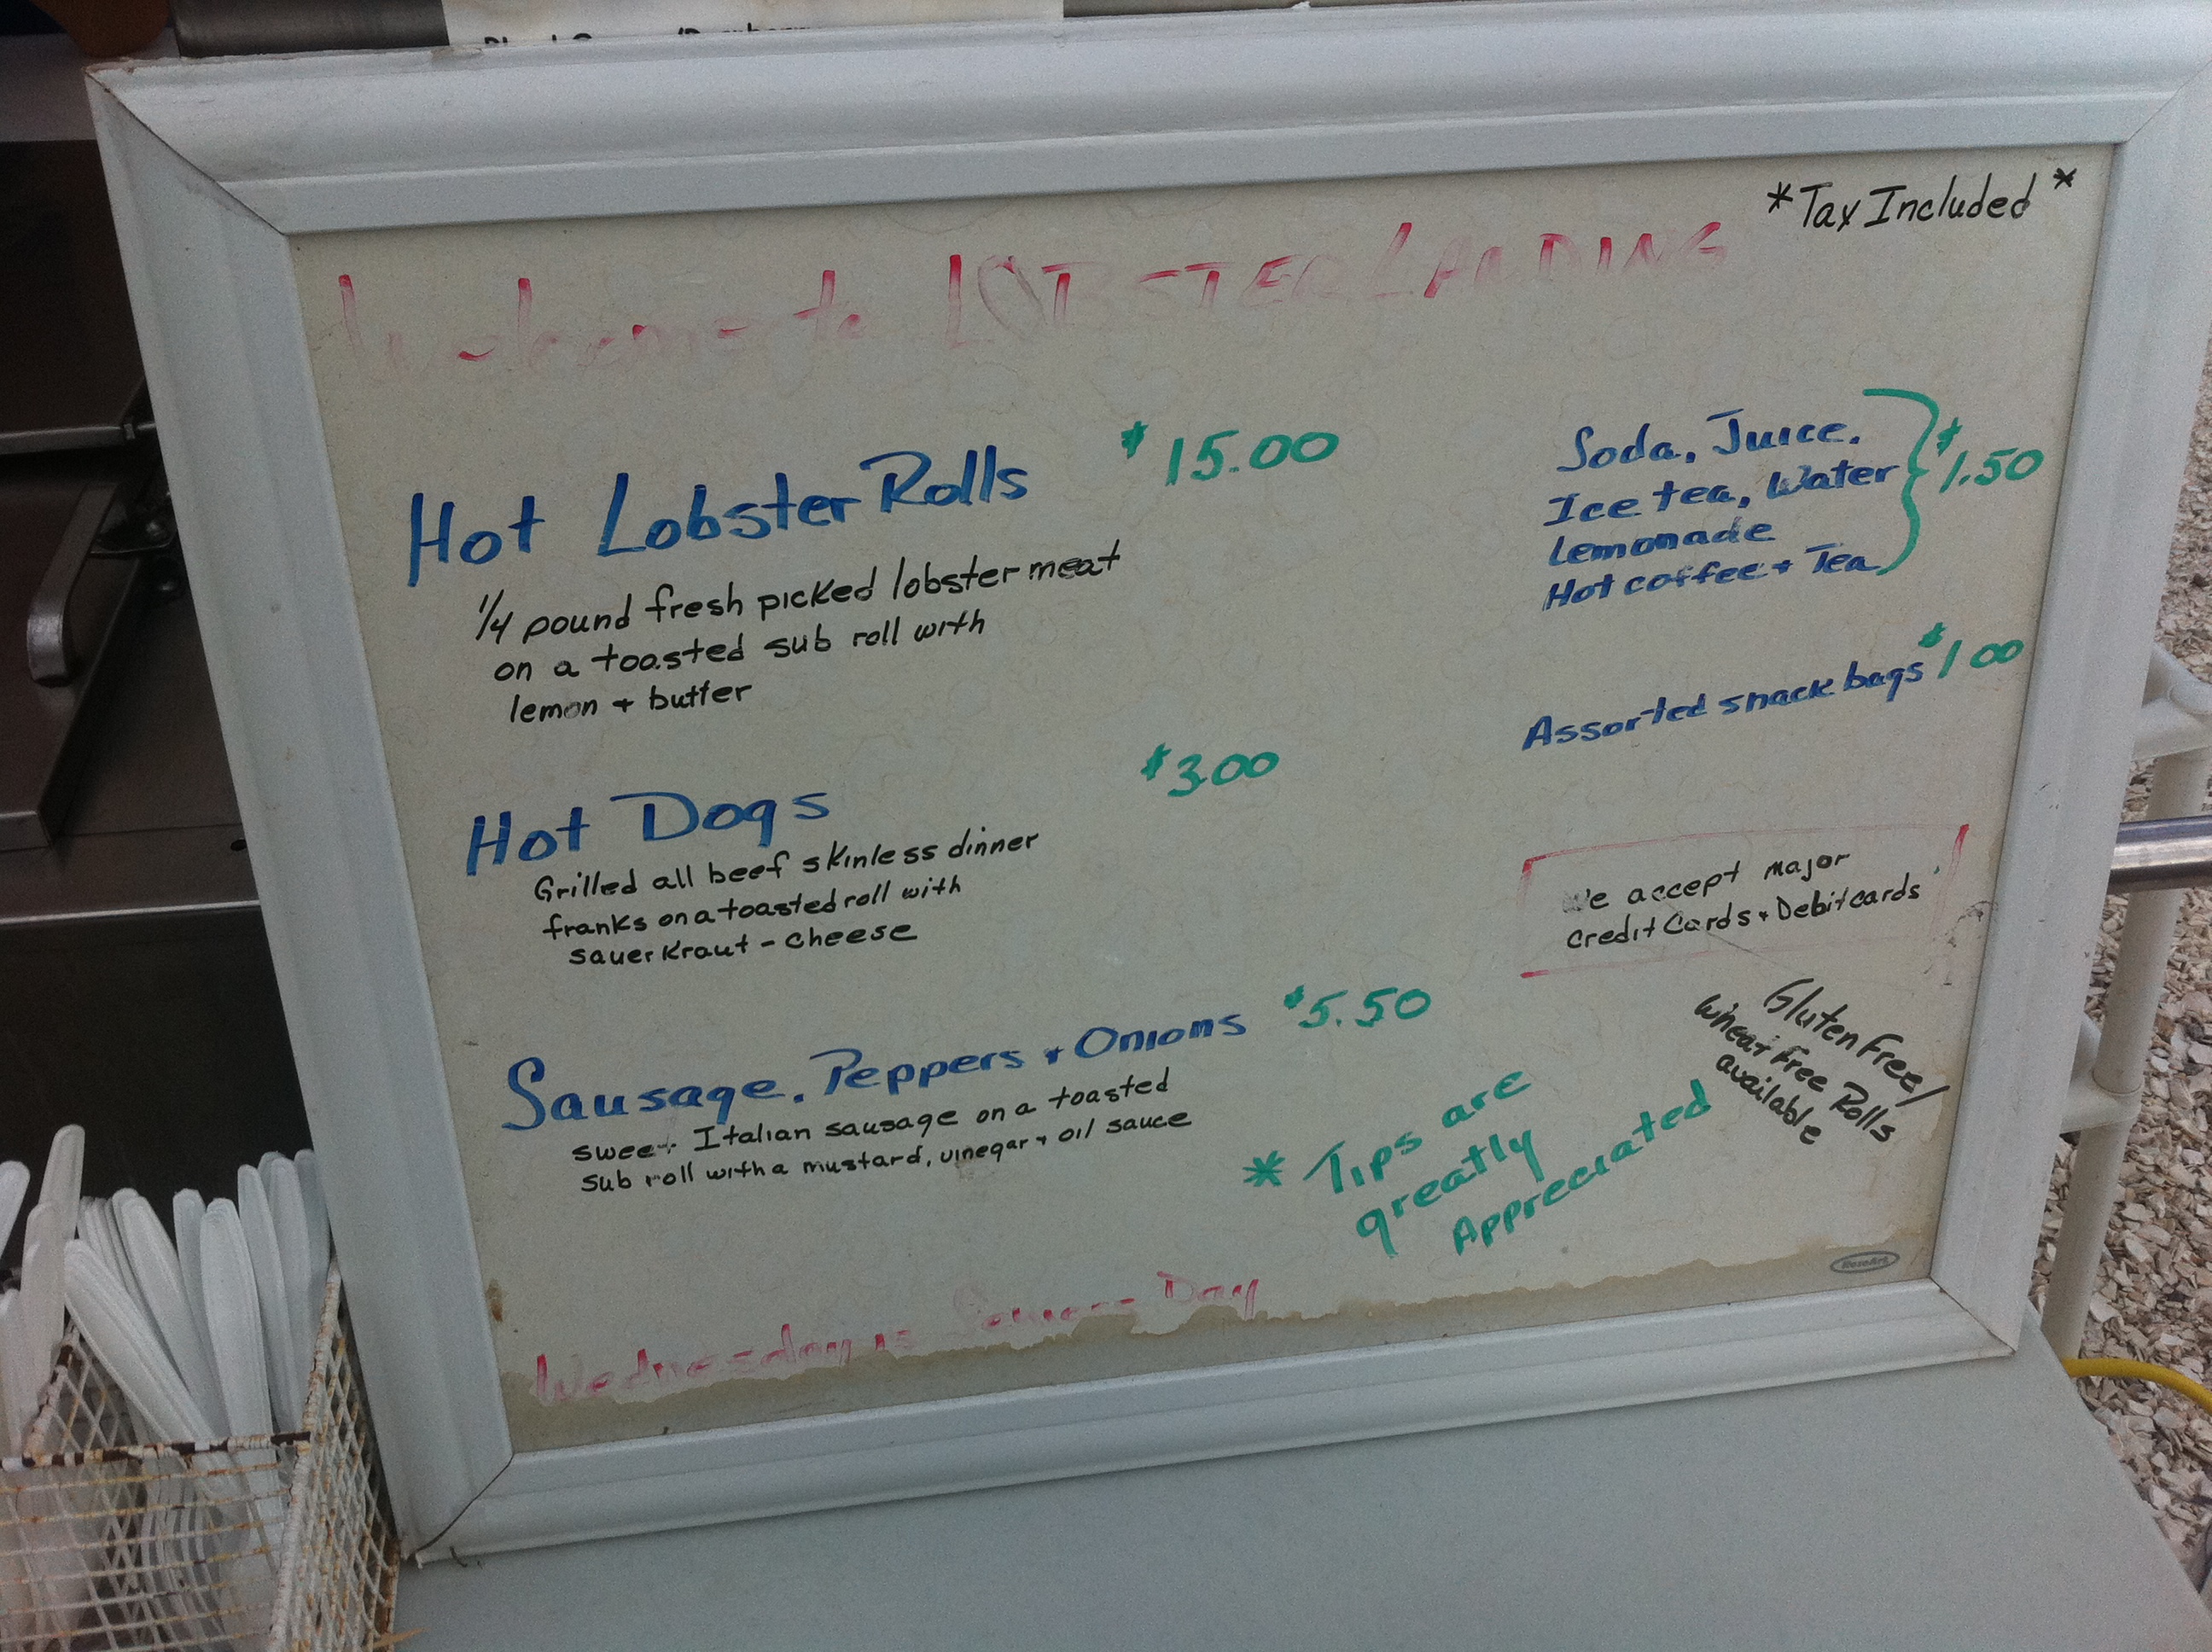 *Tax Included*
Welcome to LOBSTER LANDING
Hot Lobster Rolls $15.00
1/4 pound fresh picked lobster meat
on a toasted sub roll with
lemon + butter
Hot Dogs $3.00
Grilled all beef skinless dinner
franks on a toasted roll with
sauerkraut - cheese
Sausage, Peppers + Onions $5.50
sweet Italian sausage on a toasted
sub roll with a mustard, vinegar + oil sauce
Soda, Juice,
Ice tea, Water
Lemonade
Hot coffee + Tea
$1.50
Assorted snack bags $1.00
We accept major
credit Cards + Debit cards
Gluten Free/
Wheat Free Rolls
available
* Tips are
greatly
Appreciated
Wednesday is Day
RoseArt